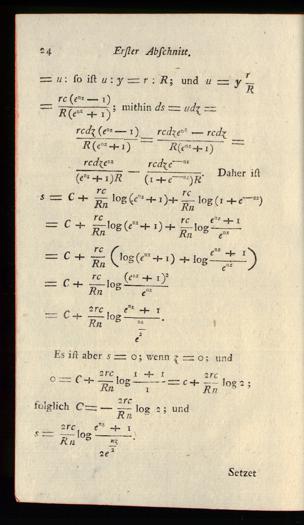 24 Erſter Abſchnitt.
= u: ſo iſt u : y = r : R; und u = y r/R
= rc(e^{nz} — 1)/R(e^{nz} + 1); mithin ds = udz =
rcdz(e^{nz} — 1)/R(e^{nz} + 1) = rcdze^{nz} — rcdz/R(e^{nz} + 1) =
rcdze^{nz}/(e^{nz} + 1)R — rcdze^{—nz}/(1 + e^{—nz})R. Daher iſt
s = C + rc/Rn log (e^{nz} + 1) + rc/Rn log (1 + e^{—nz})
= C + rc/Rn log (e^{nz} + 1) + rc/Rn log e^{nz} + 1/e^{nz}
= C + rc/Rn (log (e^{nz} + 1) + log e^{nz} + 1/e^{nz})
= C + rc/Rn log (e^{nz} + 1)²/e^{nz}
= C + 2rc/Rn log e^{nz} + 1/e^{nz/2}.
Es iſt aber s = 0; wenn z = 0; und
0 = C + 2rc/Rn log 1 + 1/1 = c + 2rc/Rn log 2;
folglich C = — 2rc/Rn log 2; und
s = 2rc/Rn log e^{nz} + 1/2e^{nz/2}.
Setzet